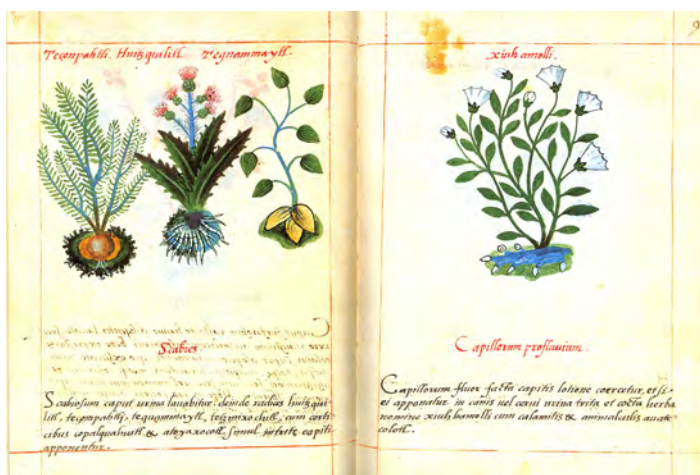 Teçonpahtli. Huitzquilitl. Teqnammaytl.
Scabies.
Scabiosum caput urina lauabitur: deinde radices huitzqui
litl, teçonpahtli, tequammaytl, tetzmixochitl, cum corti
cibus copalquahuitl & atoyaxocotl simul tritæ capiti
apponentur.
9
xiuh amolli.
Capillorum profluuium.
Capillorum fluor facta capitis lotione coercetur, et si
ei apponatur in canis uel cerui urina trita et cocta herba
nomine xiuhhamolli cum calamitis & animalculis auate
colotl.